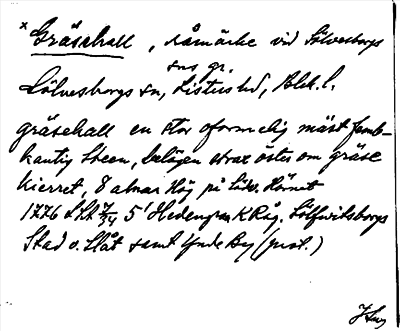 x Gräsehall, råmärke vid Sölvesborgs
sns gr.
Sölvesborgs sn, Listers hd, Blek. l.
gräsehall en stor oformelig mäst famb-
kantig Steen, belägen strax öster om gräse
kierret, 8 alnar Hög på Södv. Hörnet
1776 LSA 5' Hedengren K Råg. Sölfwitsborgs
Stad o. Slåt samt Ynde By (prot.)